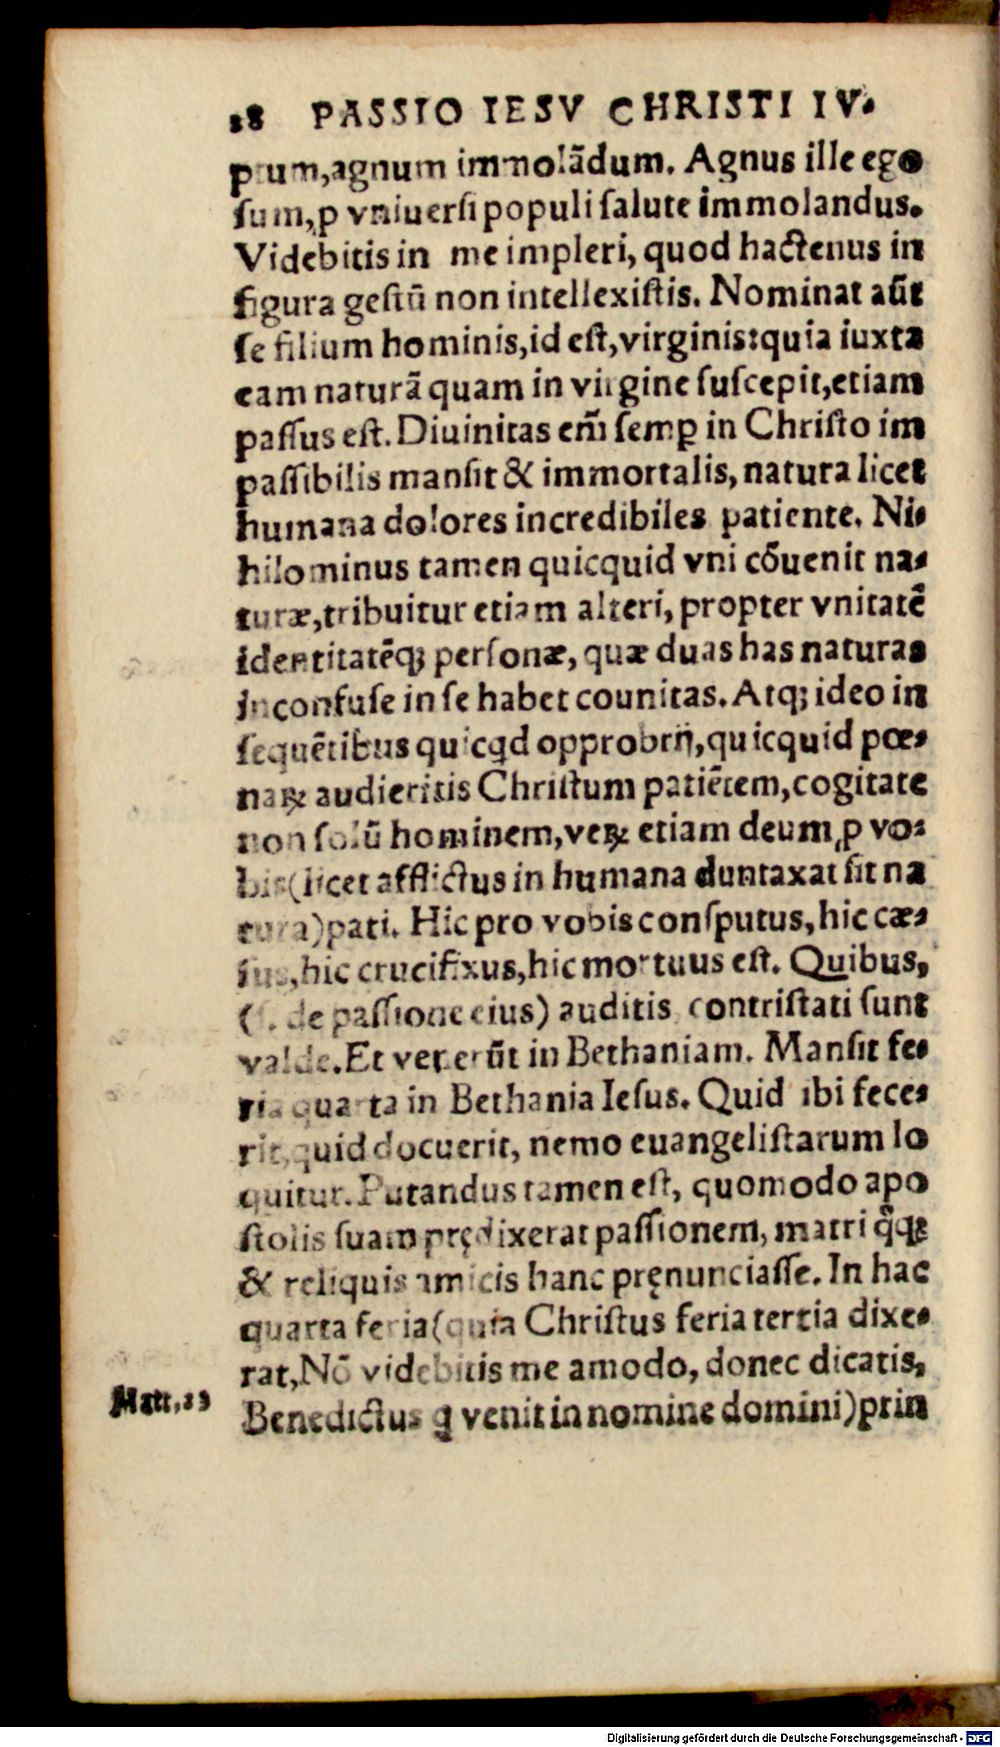 18 PASSIO IESV CHRISTI IV.
ptum, agnum immolãdum. Agnus ille ego
sum, ꝓ vniuersi populi salute immolandus.
Videbitis in me impleri, quod hactenus in
figura gestũ non intellexistis. Nominat aũt
se filium hominis, id est, virginis: quia iuxta
eam naturã quam in virgine suscepit, etiam
passus est. Diuinitas em̃ semꝑ in Christo im
passibilis mansit & immortalis, natura licet
humana dolores incredibiles patiente. Ni-
hilominus tamen quicquid vni cõuenit na-
turæ, tribuitur etiam alteri, propter vnitatẽ
identitatẽqꝫ personæ, quæ duas has naturas
inconfuse in se habet counitas. Atqꝫ ideo in
sequẽtibus quicqd opprobrij, quicquid pœ-
naꝝ audieritis Christum patiẽtem, cogitate
non solũ hominem, veꝝ etiam deum, ꝓ vo-
bis (licet afflictus in humana duntaxat sit na
tura) pati. Hic pro vobis consputus, hic cæ-
sus, hic crucifixus, hic mortuus est. Quibus,
(s. de passione eius) auditis contristati sunt
valde. Et venerũt in Bethaniam. Mansit fe-
ria quarta in Bethania Iesus. Quid ibi fece-
rit, quid docuerit, nemo euangelistarum lo
quitur. Putandus tamen est, quomodo apo
stolis suam prędixerat passionem, matri q̃qꝫ
& reliquis amicis hanc pręnunciasse. In hac
quarta feria (quia Christus feria tertia dixe-
rat, Nõ videbitis me amodo, donec dicatis,
Matt. 23
Benedictus q venit in nomine domini) prin
Digitalisierung gefördert durch die Deutsche Forschungsgemeinschaft - DFG